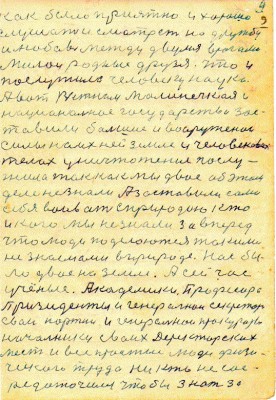 9
как было приятно и хорошо
слушать и смотреть на дружбу
и любовь между двумя
милой родные друзья. что и
послужило человеку наука.
А вот
национальное государство зас-
тавили большие и вооружение
силы на их ней земле и человеков
телах уничтожение послу-
жила так как мы двое об этом
дело не знали А заставили сами
себя воевать с природою кто
и кого мы не знали за вперед
что люди появляются такими
не знаками в природе. Нас бы-
ло двое на земле. А сейчас
учёные. Академики, Професора
Президенты и генералном секретор
сваи партии и генералном прокуроры
начальники своих Директорских
мест и все простые люди физи-
ческого труда никто не сос-
редоточил чтобы знать за